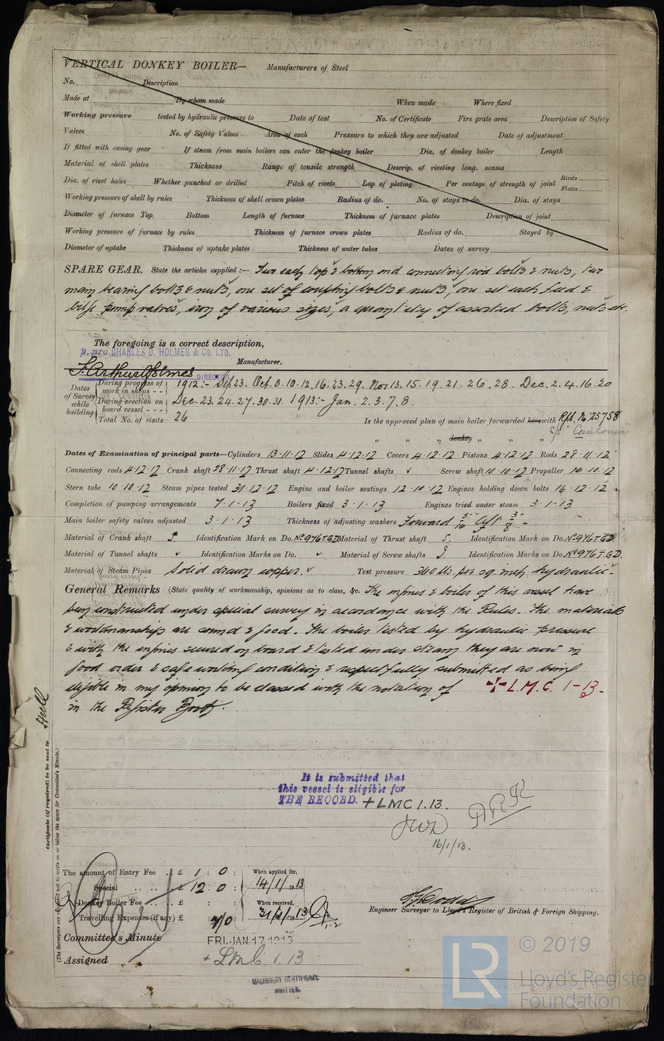 VERTICAL DONKEY BOILER— Manufacturers of Steel
No. Description
Made at By whom made When made Where fixed
Working pressure tested by hydraulic pressure to Date of test No. of Certificate Fire grate area Description of Safety
Valves No. of Safety Valves Area of each Pressure to which they are adjusted Date of adjustment
If fitted with casing gear If steam from main boilers can enter the donkey boiler Dia. of donkey boiler Length
Material of shell plates Thickness Range of tensile strength Descrip. of riveting long. seams
Dia. of rivet holes Whether punched or drilled Pitch of rivets Lap of plating Per centage of strength of joint Rivets Plates
Working pressure of shell by rules Thickness of shell crown plates Radius of do. No. of stays to do. Dia. of stays
Diameter of furnace Top Bottom Length of furnace Thickness of furnace plates Description of joint
Working pressure of furnace by rules Thickness of furnace crown plates Radius of do. Stayed by
Diameter of uptake Thickness of uptake plates Thickness of water tubes Dates of survey
SPARE GEAR. State the articles supplied:— Two each top & bottom end connecting rod bolts & nuts, two
main bearing bolts & nuts, one set of coupling bolts & nuts, one set each feed &
bilge pump valves, iron of various sizes, a quantity of assorted bolts, nuts etc.
The foregoing is a correct description,
CHARLES D. HOLMES & Co. LTD.
F. Arthur Holmes DIRECTOR Manufacturer.
Dates of Survey while building
During progress of work in shops - - 1912:- Sep 23. Oct. 8. 10. 12. 16. 23. 29. Nov 13. 15. 19. 21. 26. 28. Dec. 2. 4. 16. 20
During erection on board vessel - - - Dec. 23. 24. 27. 30. 31. 1913:- Jan. 2. 3. 7. 8.
Total No. of visits 26 Is the approved plan of main boiler forwarded herewith Rpt. No. 25758
" " " donkey " " "
Dates of Examination of principal parts—Cylinders 13·11·12 Slides 4·12·12 Covers 4·12·12 Pistons 4·12·12 Rods 28·11·12
Connecting rods 4·12·12 Crank shaft 28·11·12 Thrust shaft 4·12·12 Tunnel shafts ✓ Screw shaft 10·10·12 Propeller 10·10·12
Stern tube 10·10·12 Steam pipes tested 31·12·12 Engine and boiler seatings 12·10·12 Engines holding down bolts 16·12·12
Completion of pumping arrangements 7·1·13 Boilers fixed 3·1·13 Engines tried under steam 3·1·13
Main boiler safety valves adjusted 3·1·13 Thickness of adjusting washers Forward Aft
Material of Crank shaft S. Identification Mark on Do. No 946 T.G.D. Material of Thrust shaft S. Identification Mark on Do. No 946 T.G.D.
Material of Tunnel shafts ✓ Identification Marks on Do. ✓ Material of Screw shafts Identification Marks on Do. No 946 T.G.D.
Material of Steam Pipes Solid drawn copper. ✓ Test pressure 360 lbs. per sq. inch, hydraulic.
General Remarks (State quality of workmanship, opinions as to class, &c. The engines & boilers of this vessel have
been constructed under special survey in accordance with the Rules. The materials
& workmanship are sound & good. The boiler tested by hydraulic pressure
& with the engines secured on board & tested under steam they are now in
good order & safe working condition & respectfully submitted as being
eligible in my opinion to be classed with the notation of +L.M.C. 1-13.
in the Register Book.
Hull
Certificate (if required) to be sent to
It is submitted that
this vessel is eligible for
THE RECORD. + LMC 1.13.
JWD
16/1/13.
The amount of Entry Fee .. £ 1 : 0 : When applied for,
Special .. .. £ 12 0 : 14/1/1913
Donkey Boiler Fee .. .. £ : : When received,
Travelling Expenses (if any) £ : 31/1/1913
Engineer Surveyor to Lloyd's Register of British & Foreign Shipping.
Committee's Minute FRI. JAN. 17 1913
Assigned + LMC 1.13
MACHINERY CERTIFICATE
WRITTEN.
LR © 2019
Lloyd's Register
Foundation